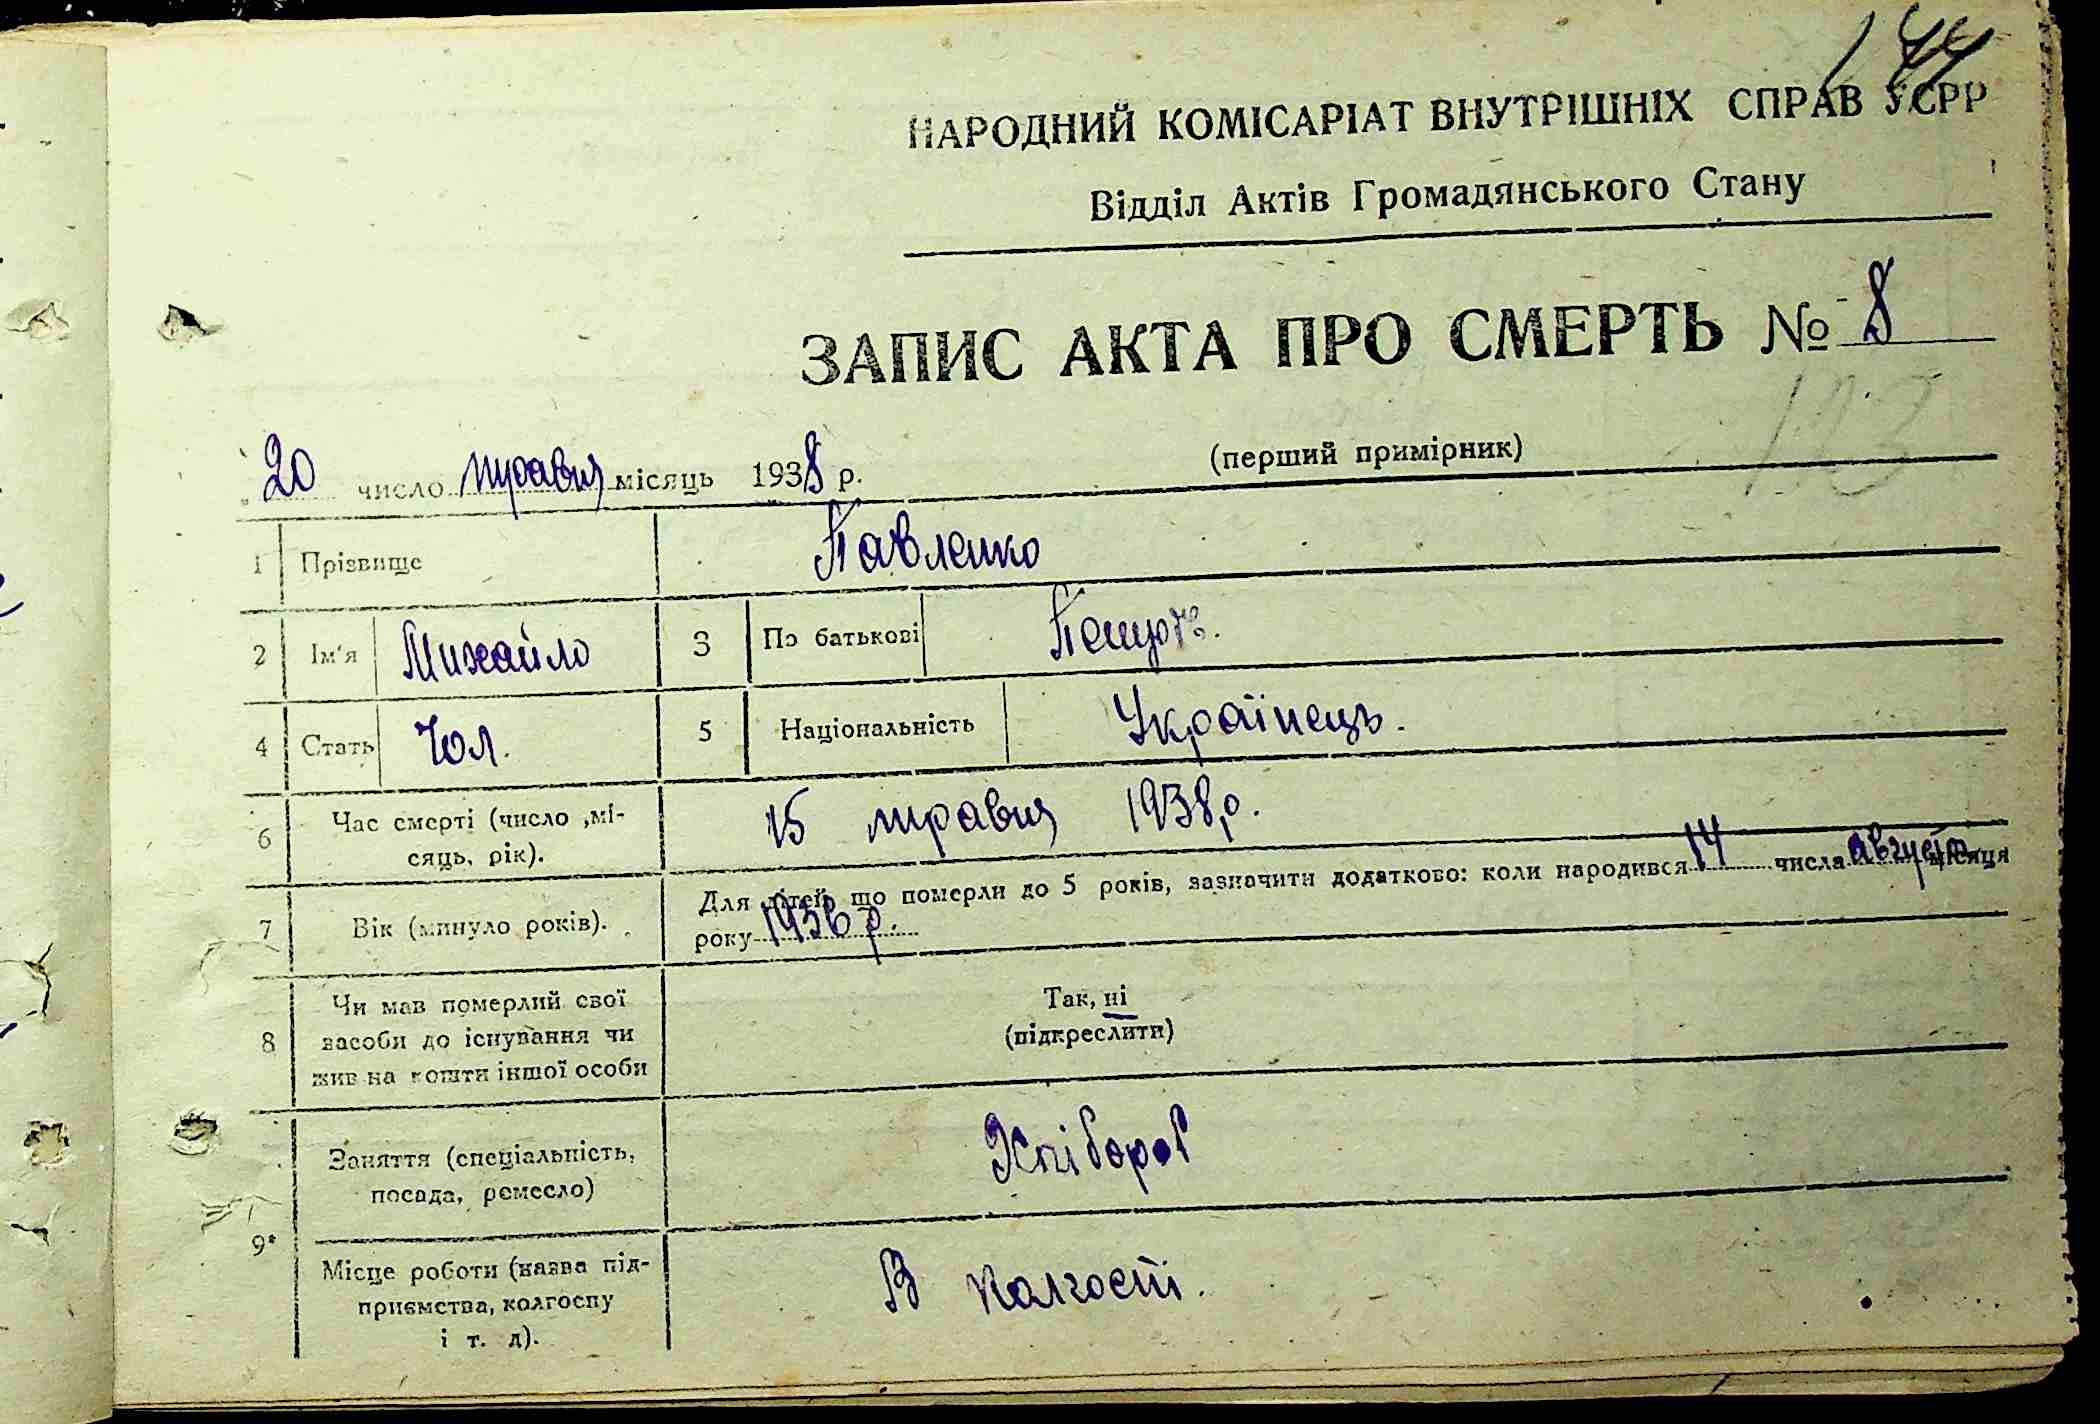 144
НАРОДНИЙ КОМІСАРІАТ ВНУТРІШНІХ СПРАВ УСРР
Відділ Актів Громадянського Стану
ЗАПИС АКТА ПРО СМЕРТЬ № 8
(перший примірник)
20 число травня місяць 1938 р.
1 Прізвище Павленко
2 Ім'я Михайло 3 По батькові
4 Стать Чол. 5 Національність Українець.
6 Час смерті (число ,мі-
сяць, рік). 15 травня 1938 р.
7 Вік (минуло років). Для дітей, що померли до 5 років, зазначити додатково: коли народився 14 числа августа місяця
року 1936 р.
8 Чи мав померлий свої
засоби до існування чи
жив на кошти іншої особи
Так, ні
(підкреслити)
9*
Заняття (спеціальність,
посада, ремесло)
Хлібороб
Місце роботи (назва під-
приємства, колгоспу
і т. д).
В колгоспі.